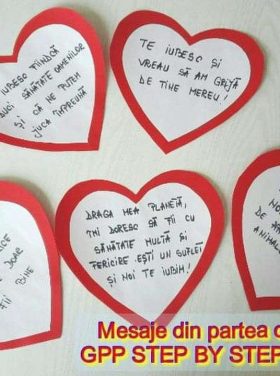 IUBESC FIINDCĂ
DUCI SĂNĂTATE OAMENILOR
ȘI CĂ NE PUTEM
JUCA ÎMPREUNĂ
TE IUBESC ȘI
VREAU SĂ AM GRIJĂ
DE TINE MEREU!
DRAGA MEA PLANETĂ,
ÎMI DORESC SĂ FII CU
SĂNĂTATE MULTĂ ȘI
FERICIRE. EȘTI UN SUFLET
ȘI NOI TE IUBIM!
DOAR
FII BINE
NO
DE
ANIMAL
Mesaje din partea
GPP STEP BY STEP